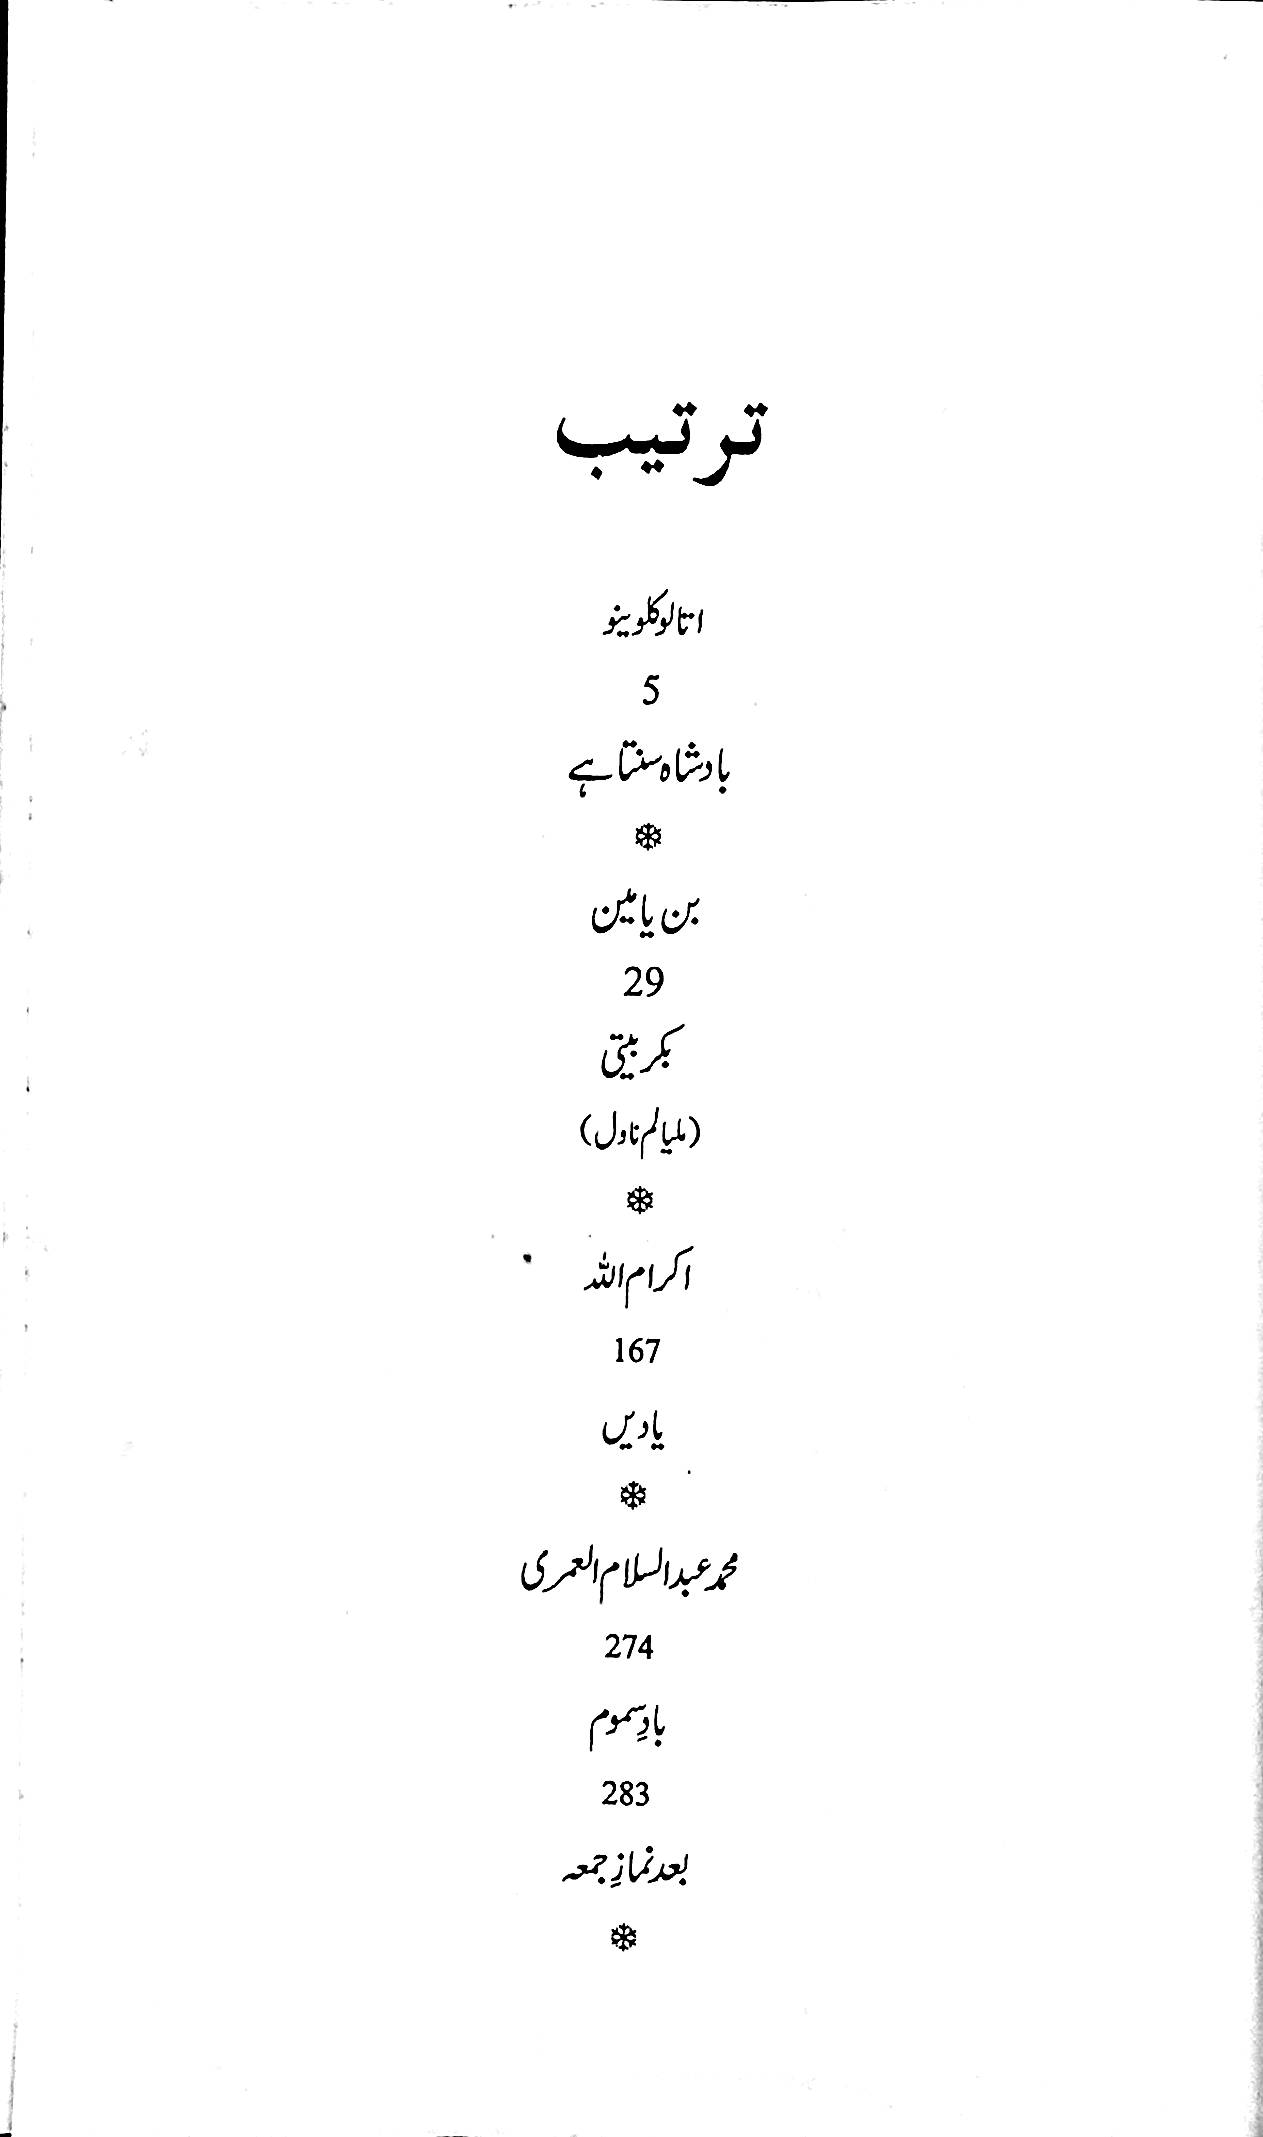 ترتیب
اتالو کلوینو
5
بادشاہ سنتا ہے
❄
بن یامین
29
بکر بیتی
(ملیالم ناول)
❄
اکرام اللہ
167
یادیں
❄
محمد عبدالسلام العمری
274
بادِ سموم
283
بعد نمازِ جمعہ
❄